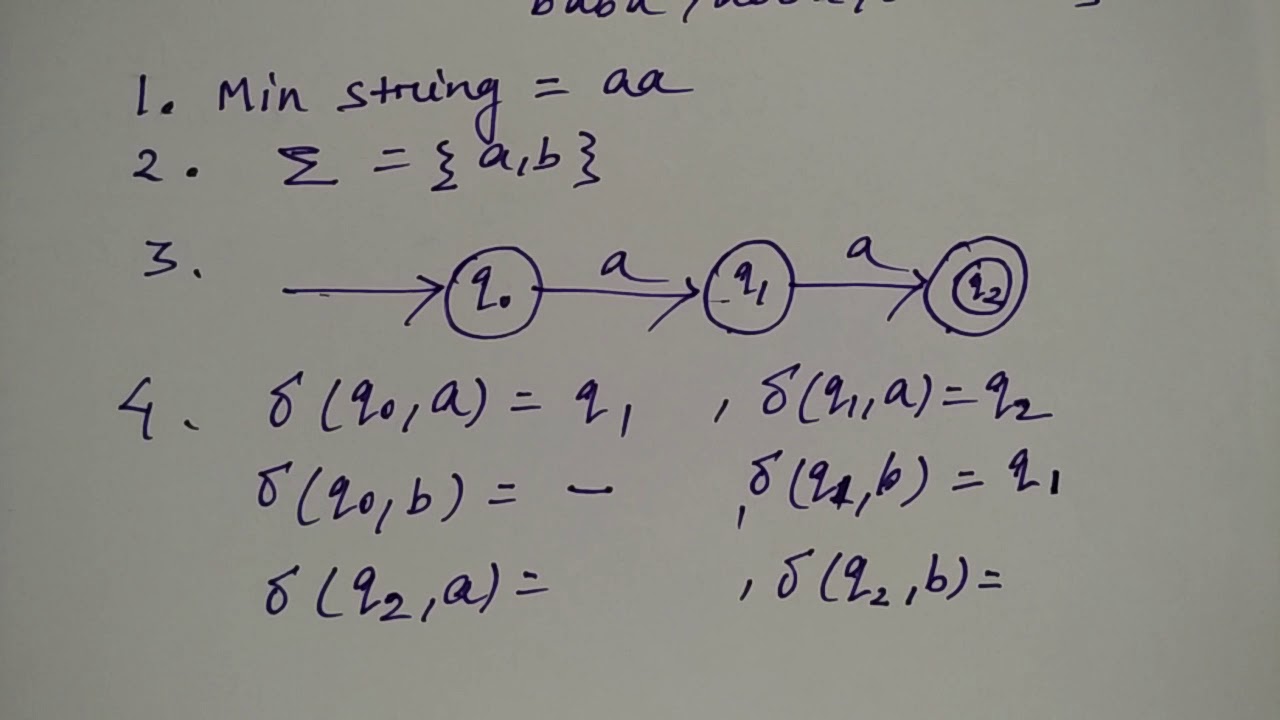 1. Min string = aa
2. Σ = {a,b}
3. q0 a q1 a q2
4. δ(q0,a) = q1 , δ(q1,a)=q2
δ(q0,b) = - , δ(q1,b) = q1
δ(q2,a)= , δ(q2,b)=